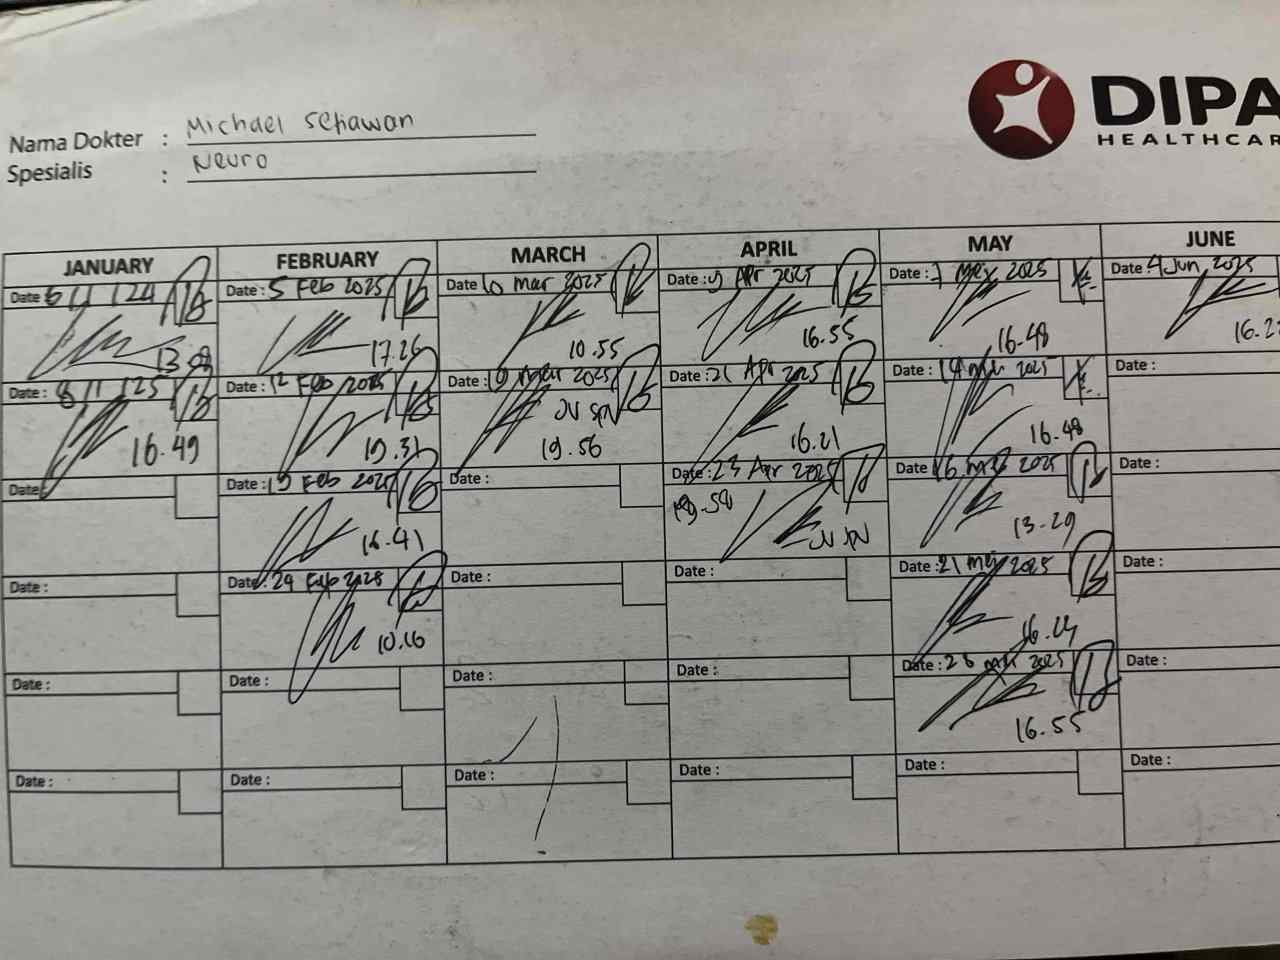 DIPA
HEALTHCAR
Nama Dokter : Michael Setiawan
Spesialis : Neuro
JANUARY FEBRUARY MARCH APRIL MAY JUNE
Date 6 11 124 Date : 5 Feb 2025 Date 10 mar 2025 Date : 9 Apr 2025 Date : 7 Mei 2025 Date : 4 Jun 2025
13.08 17.26 10.55 16.55 16.48 16.2
Date : 8 11 125 Date : 12 Feb 2025 Date : 19 mar 2025 Date : 21 Apr 2025 Date : 14 Mei 2025 Date :
16.49 19.31 JV SPV 19.56 16.21 16.48
Date Date : 19 Feb 2025 Date : Date : 23 Apr 2025 Date 16 mei 2025 Date :
16.41 19.58 JV SPV 13.29
Date : Date : 24 Feb 2025 Date : Date : Date : 21 Mei 2025 Date :
10.16 16.24
Date : Date : Date : Date : Date : 26 Mei 2025 Date :
16.55
Date : Date : Date : Date : Date : Date :